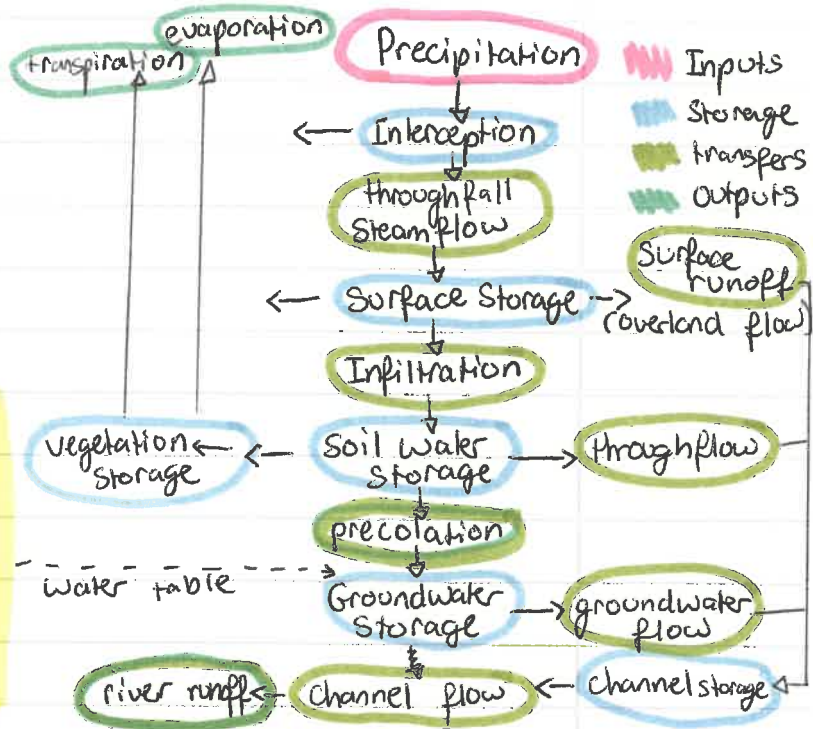 evaporation
transpiration
Precipitation
Inputs
Storage
transfers
Outputs
Interception
throughfall
Steamflow
Surface Storage
Surface
runoff
(overland flow)
Infiltration
vegetation
storage
Soil water
storage
throughflow
precolation
water table
Groundwater
Storage
groundwater
flow
river runoff
Channel flow
Channel storage